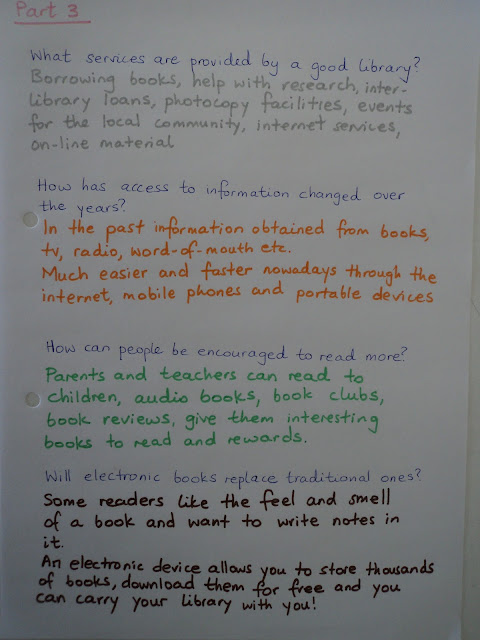 Part 3
What services are provided by a good library?
Borrowing books, help with research, inter-
library loans, photocopy facilities, events
for the local community, internet services,
on-line material
How has access to information changed over
the years?
In the past information obtained from books,
tv, radio, word-of-mouth etc.
Much easier and faster nowadays through the
internet, mobile phones and portable devices
How can people be encouraged to read more?
Parents and teachers can read to
children, audio books, book clubs,
book reviews, give them interesting
books to read and rewards.
Will electronic books replace traditional ones?
Some readers like the feel and smell
of a book and want to write notes in
it.
An electronic device allows you to store thousands
of books, download them for free and you
can carry your library with you!